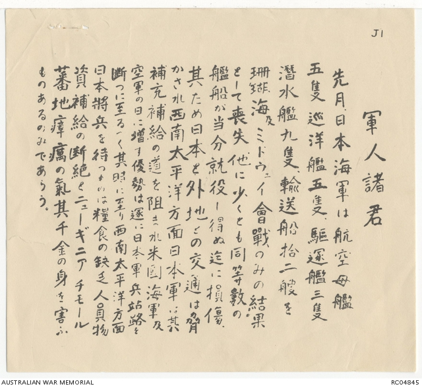 J1
軍人諸君
先月日本海軍は航空母艦
五隻巡洋艦五隻、駆逐艦三隻
潜水艦九隻輸送船拾二艘を
珊瑚海及ミドウェイ會戰のみの結果
として喪失他に少くとも同等数の
艦船が当分就役し得ぬ迄に損傷、
其ため日本と外地との交通は脅
かされ西南太平洋方面日本軍に於
補充補給の道を阻まれ米国海軍及
空軍の日に増す優勢は遂に日本軍兵站路を
断つに至るべく其暁に至り西南太平洋方面
日本將兵を待つものは糧食の缺乏人員物
資補給の断絶とニューギニアチモール
蕃地瘴癘の氣其千金の身を害ふ
ものあるのみであらう。
AUSTRALIAN WAR MEMORIAL
RC04845